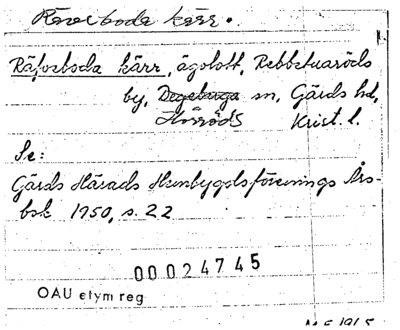 Rävaboda kärr.
Räfvaboda kärr, ägolott, Rebbetuaröds
by, Degeberga sn, Gärds hd,
Hörröds Krist. l.
Se:
Gärds Härads Hembygdsförenings Års-
bok 1950, s. 22
00024745
OAU etym reg